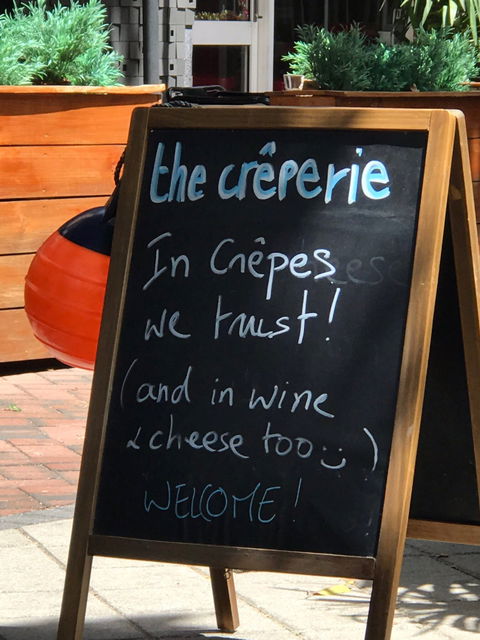 the crêperie
In Crêpes
we trust!
(and in wine
& cheese too :-)
WELCOME!